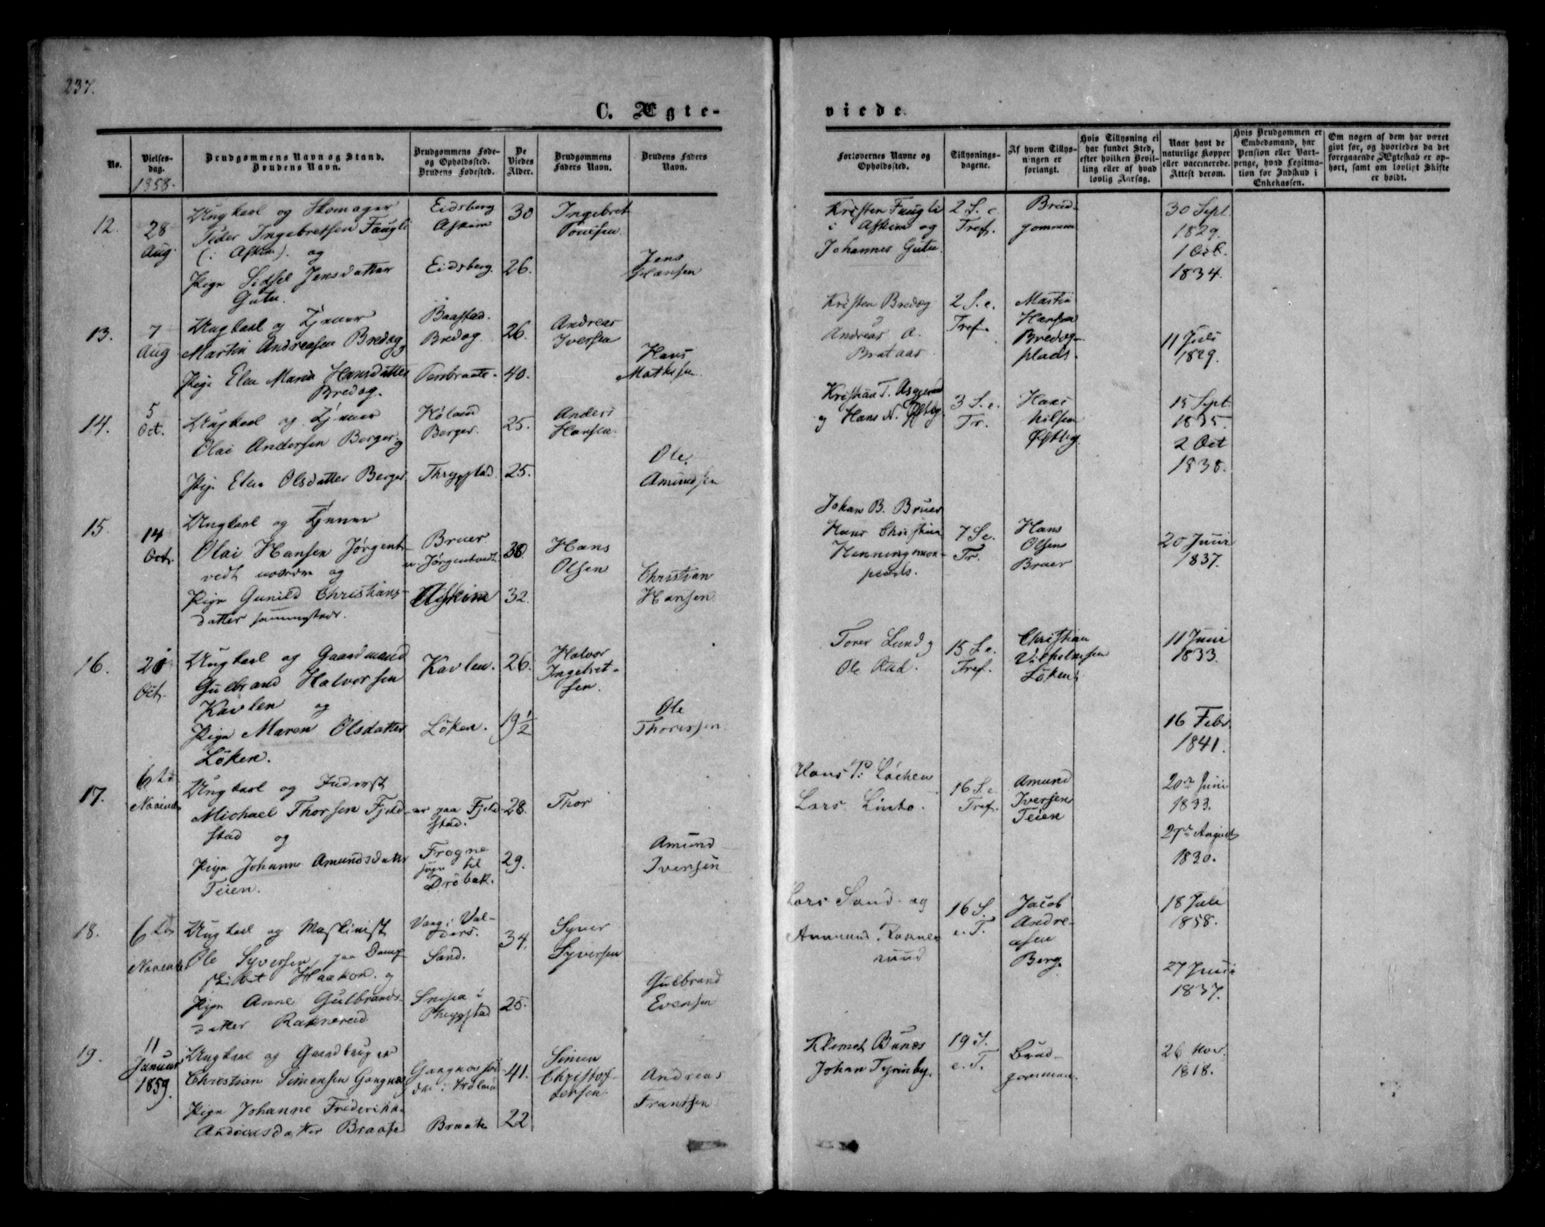 237.
C. Ægteviede.
No.
Vielsesdag.
1858.
Brudgommens Navn og Stand.
Brudens Navn.
Brudgommens Føde- og Opholdssted.
Brudens Fødested.
De Viedes Alder.
Brudgommens Faders Navn.
Brudens Faders Navn.
Forlovernes Navne og Opholdssted.
Tillysningsdagene.
Af hvem Tillysningen er forlangt.
Hvis Tillysning ei har fundet Sted, efter hvilken Bevilling eller af hvad lovlig Aarsag.
Naar havt de naturlige Kopper eller vaccinerede. Attest derom.
Hvis Brudgommen er Embedsmand, har Pension eller Vartpenge, hvad Legitimation for Indskud i Enkekassen.
Om nogen af dem har været givt før, og hvorledes da det foregaaende Ægteskab er ophørt, samt om lovligt Skifte er holdt.
12.
28 Aug
Ungkarl og Skomager
Peder Ingebretsen Fangli
(i Askim) og
Pige Sidsel Jensdatter
Gutu.
Eidsberg
Askim
Eidsberg
30
26.
Ingebret
Jens
Hansen
Kristen Fangli
i Askim og
Johannes Gutu.
2 S. e.
Tref.
Brud-
gommen
30 Sept.
1829.
1 Oct.
1834.
13.
7 Aug
Ungkarl og
Martin Andreasen Bredag
Pige Elen Maria Hansdatter
Bredag.
Baastad.
Bredag
26.
40.
Andreas
Iversen
Hans
Mathisen
Kristen Bredag
Andreas A.
Brataas
2. S. e.
Tref.
Martin
Hansen
Bredag-
plads.
11 Juli
1829.
14.
5 Oct.
Ungkarl og
Olai Andersen Berger og
Pige Elen Olsdatter Berger
Høland
Berger.
Thrygstad
25.
25.
Anders
Hansen.
Ole
Amundsen
Kristian T.
og Hans N.
3 S. e.
Tr.
Hans
Nilsen
15 Sept
1835.
2 Oct
1838.
15.
14 Oct.
Ungkarl og
Olai Hansen Jørgent-
vedt og
Pige Gunild Christians-
datter sammesteds.
Bruer
Jørgentvedt
Askim
30
32.
Hans
Olsen
Christian
Hansen
Johan B. Bruer
Hans Christian
Henningsmo-
plads.
7 S. e.
Tr.
Hans
Olsen
Bruer
20 Juni
1837.
16.
Oct.
Ungkarl og Gaardmand
Gulbrand Halvorsen
Kavlen og
Pige Maren Olsdatter
Løken.
Kavlen.
Løken.
26.
19½
Halvor
Ingebret-
sen.
Ole
Thoresen
Torer Lund og
Ole Rud.
15 S. e.
Tref.
Christian
Vilhelmsen
Løken.
11 Juni
1833.
16 Febr
1841.
17.
6te
November
Ungkarl og Inderst
Michael Thorsen Fjeld-
stad og
Pige Johanne Amundsdatter
Teien.
er paa Fjeld
stad.
Frogne
sogn til
Drøbak.
28.
29.
Thor
Amund
Iversen
Hans P. Løchen
Lars Linto.
16 S. e.
Tref.
Amund
Iversen
Teien
20de Juni
1833.
27de August
1830.
18.
6te
November
Ungkarl og Maskinist
Ole Syversen paa Damp-
skibet Haakon og
Pige Anne Gulbrands-
datter Raknerud
Vang i Val-
ders.
Sand.
Snipa i
Thrygstad
34.
25.
Syver
Syversen
Gulbrand
Evensen
Lars Sand og
Ammund Rakne-
ruud
16 S.
e. T.
Jacob
Andre-
asen
Berg
18 Juli
1858.
27 Juni
1837.
19.
11
Januar
1859.
Ungkarl og Gaardbruger
Christian Simensen Gangnæs
Pige Johanne Frederikke
Andreasdatter Braate
Braate
41.
22
Simen
Christof-
fersen
Andreas
Frantsen
Klemet Bunes
Johan Tyriby.
19 S.
e. T.
Brud-
gommen.
26 Nov.
1818.